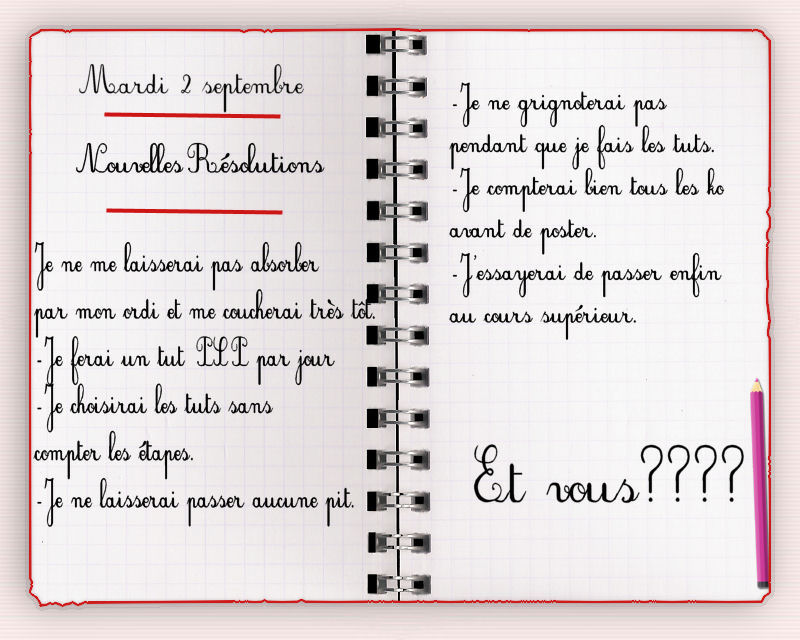 Mardi 2 septembre
Nouvelles Résolutions
Je ne me laisserai pas absorber
par mon ordi et me coucherai très tôt.
-Je ferai un tut PSP par jour
-Je choisirai les tuts sans
compter les étapes.
-Je ne laisserai passer aucune pit.
-Je ne grignoterai pas
pendant que je fais les tuts.
-Je compterai bien tous les ko
avant de poster.
-J'essayerai de passer enfin
au cours supérieur.
Et vous????